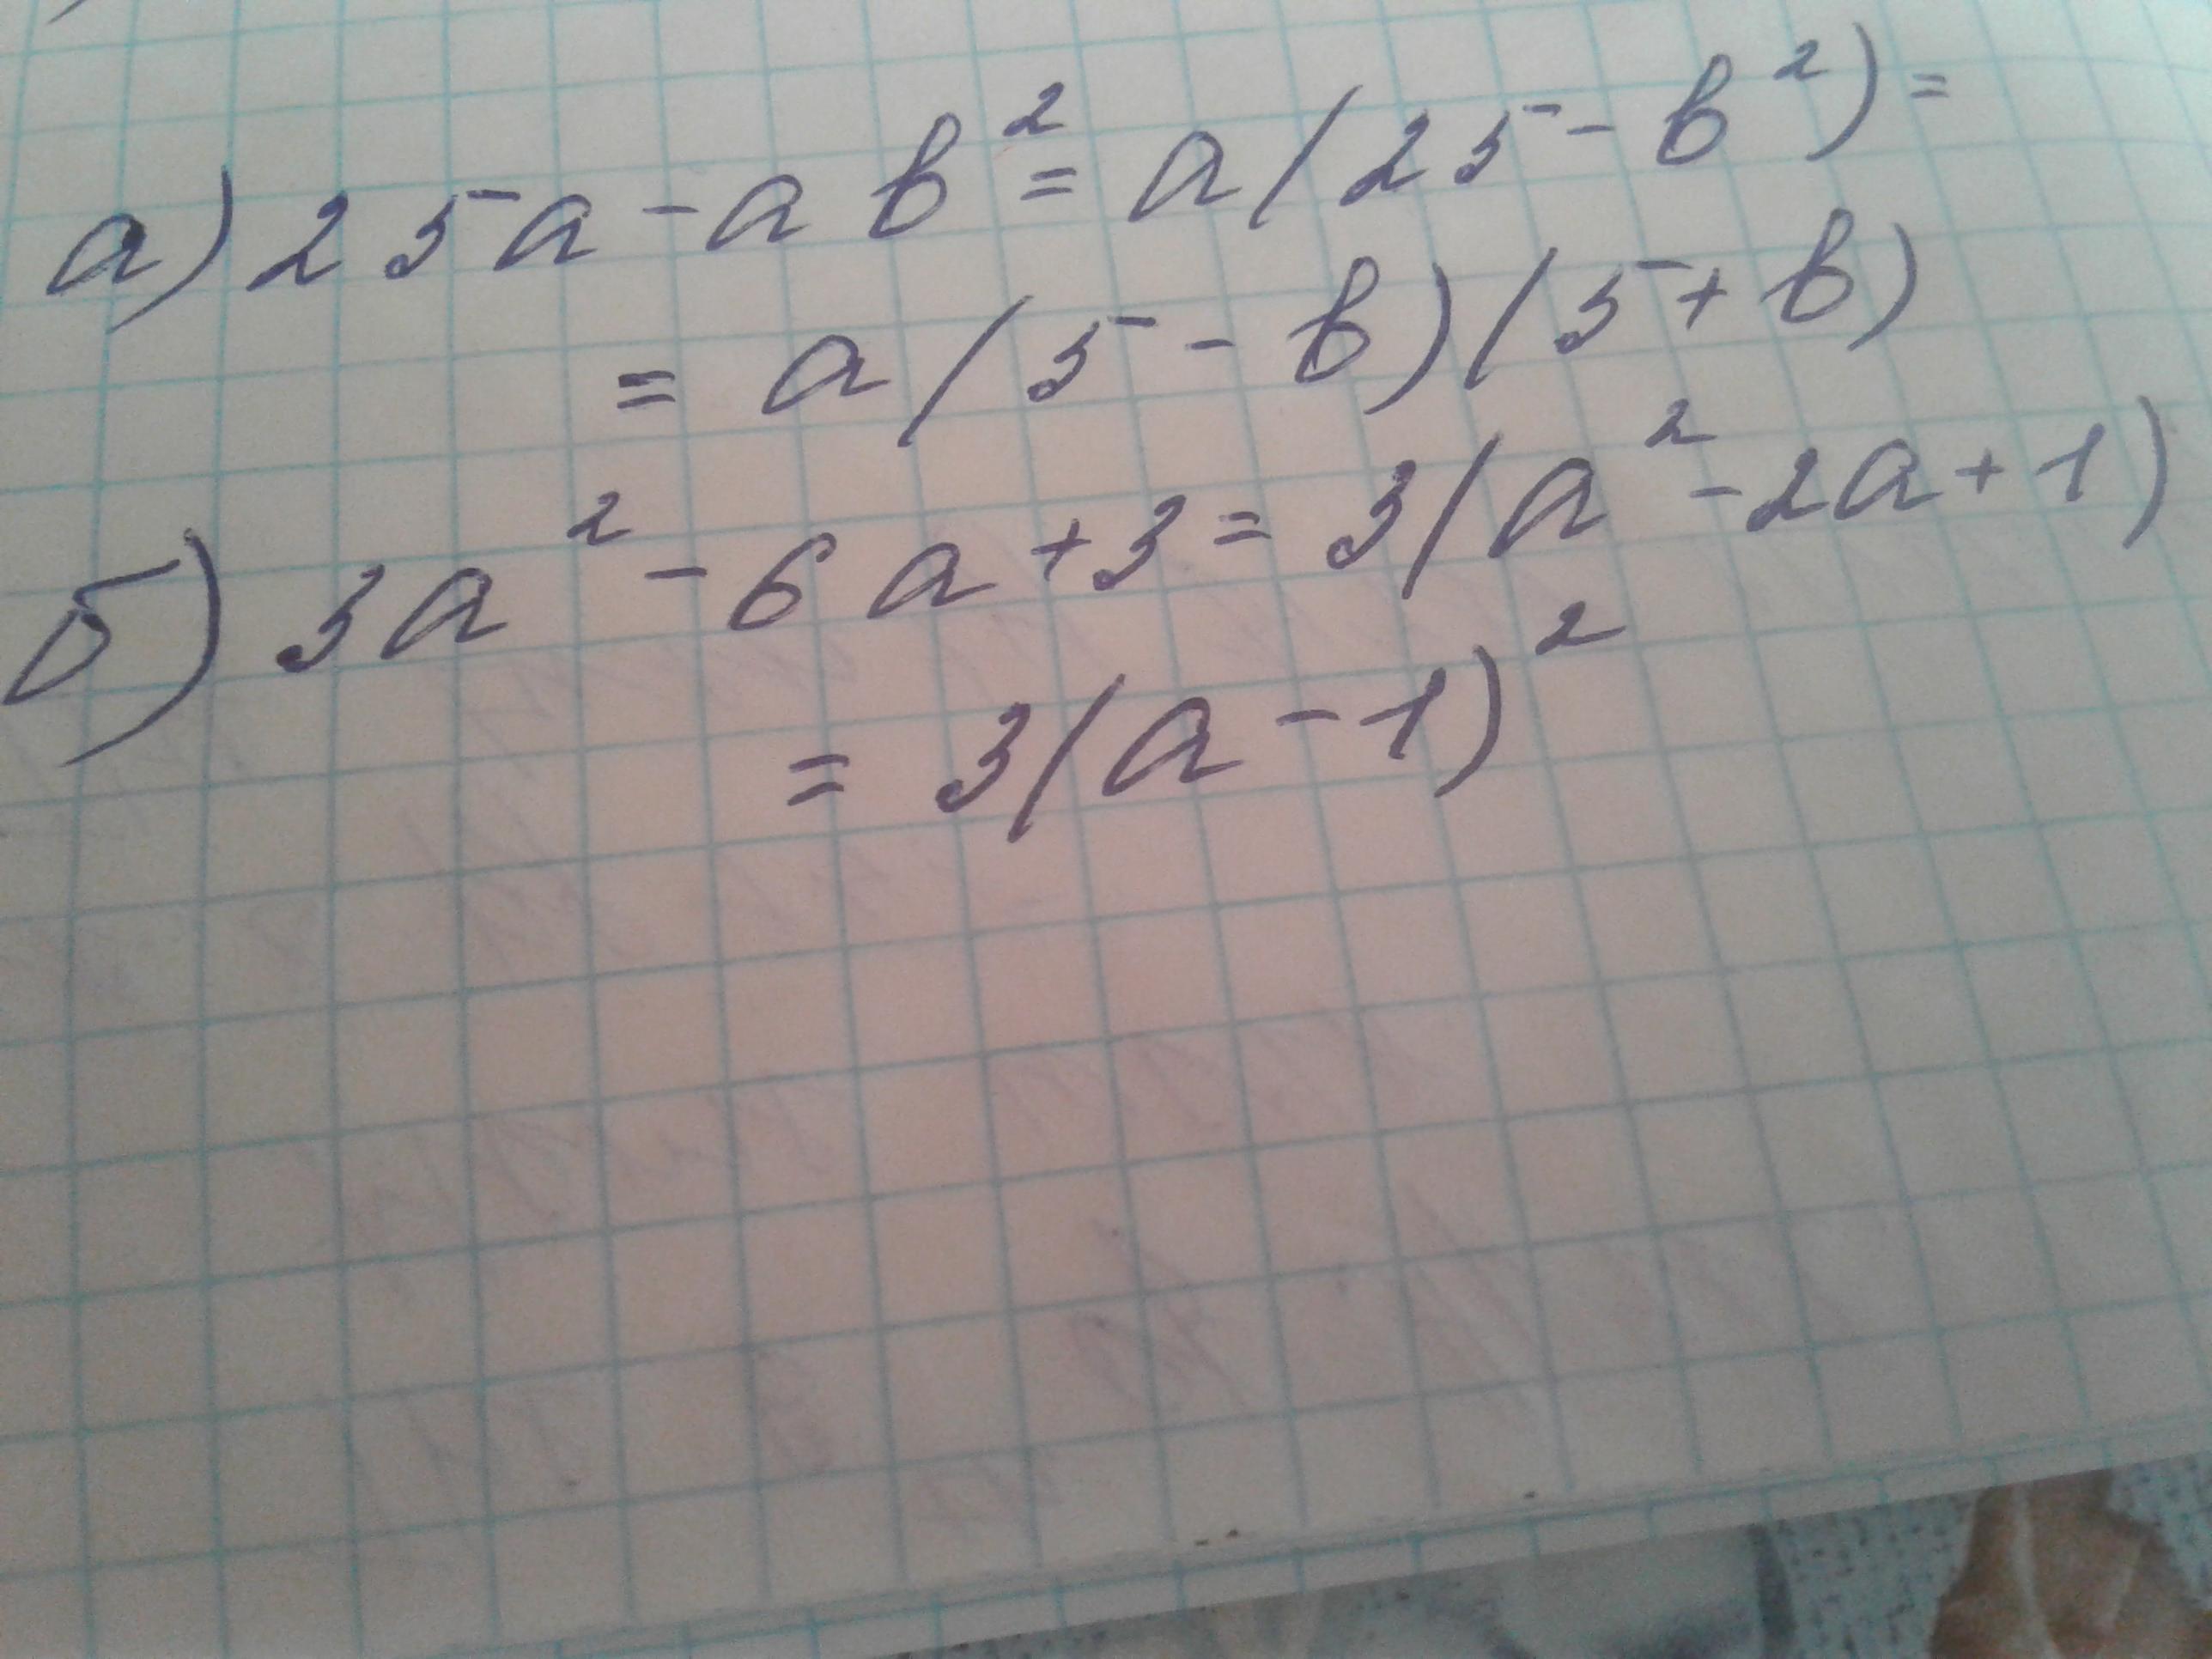 а) 25a - ab² = a(25 - b²) =
= a(5 - b)(5 + b)
б) 3a² - 6a + 3 = 3(a² - 2a + 1)
= 3(a - 1)²